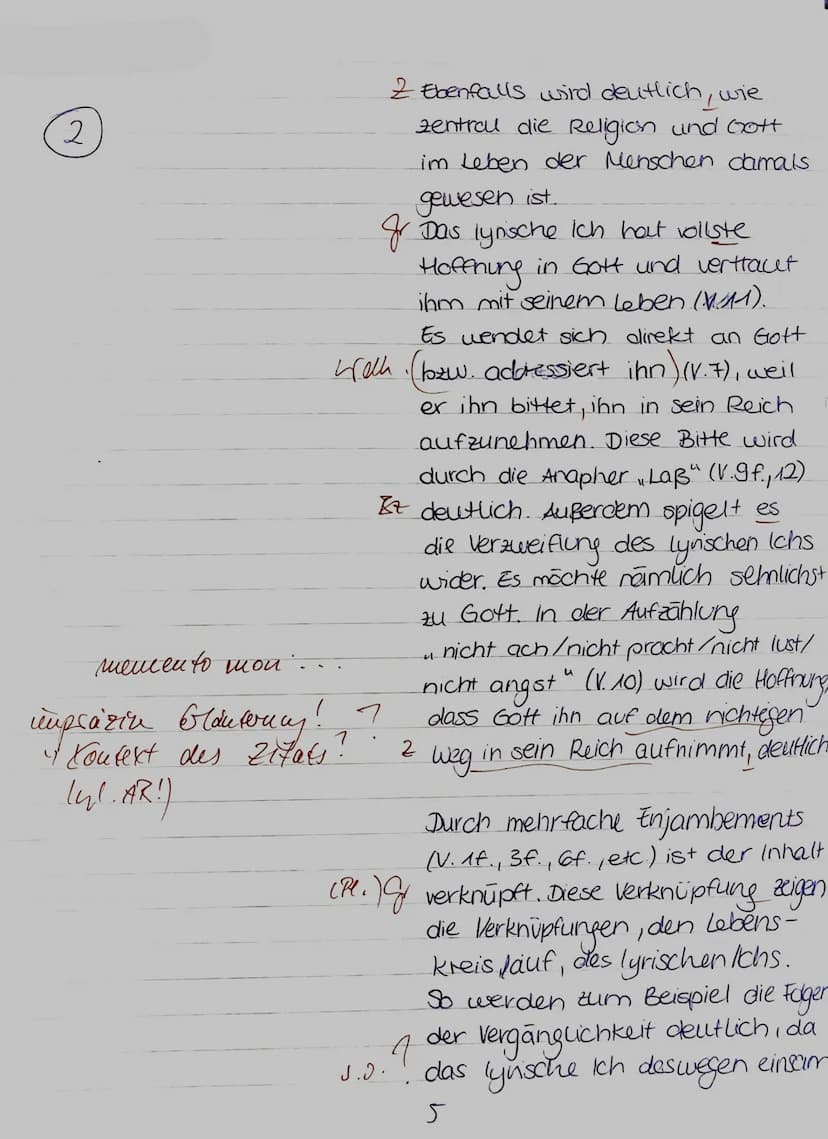 2
Z Ebenfalls wird deutlich, wie
zentral die Religion und Gott
im Leben der Menschen damals
gewesen ist.
Gr Das lyrische Ich hat vollste
Hoffnung in Gott und vertraut
ihm mit seinem Leben (V.11).
Es wendet sich direkt an Gott
Wdh. (bzw. adressiert ihn) (V.7), weil
er ihn bittet, ihn in sein Reich
aufzunehmen. Diese Bitte wird
durch die Anapher „Laß" (V.9f.,12)
Bz deutlich. Außerdem spigelt es
die Verzweiflung des lyrischen Ichs
wider. Es möchte nämlich sehnlichst
zu Gott. In der Aufzählung
„nicht ach/nicht pracht/nicht lust/
memento mori ...
nicht angst" (V.10) wird die Hoffnung
unpräzise Erläuterung! ?
dass Gott ihn auf dem richtegen
Kontext des Zitats? Z
Weg in sein Reich aufnimmt, deutlich
(vgl. AR!)
Durch mehrfache Enjambements
(V. 1f., 3f., 6f., etc) ist der Inhalt
(Pl.) Gr verknüpft. Diese Verknüpfung zeigen
die Verknüpfungen, den Lebens-
kreislauf, des lyrischen Ichs.
So werden zum Beispiel die Folgen
der Vergänglichkeit deutlich, da
s.o. ? das lyrische Ich deswegen einsam
5